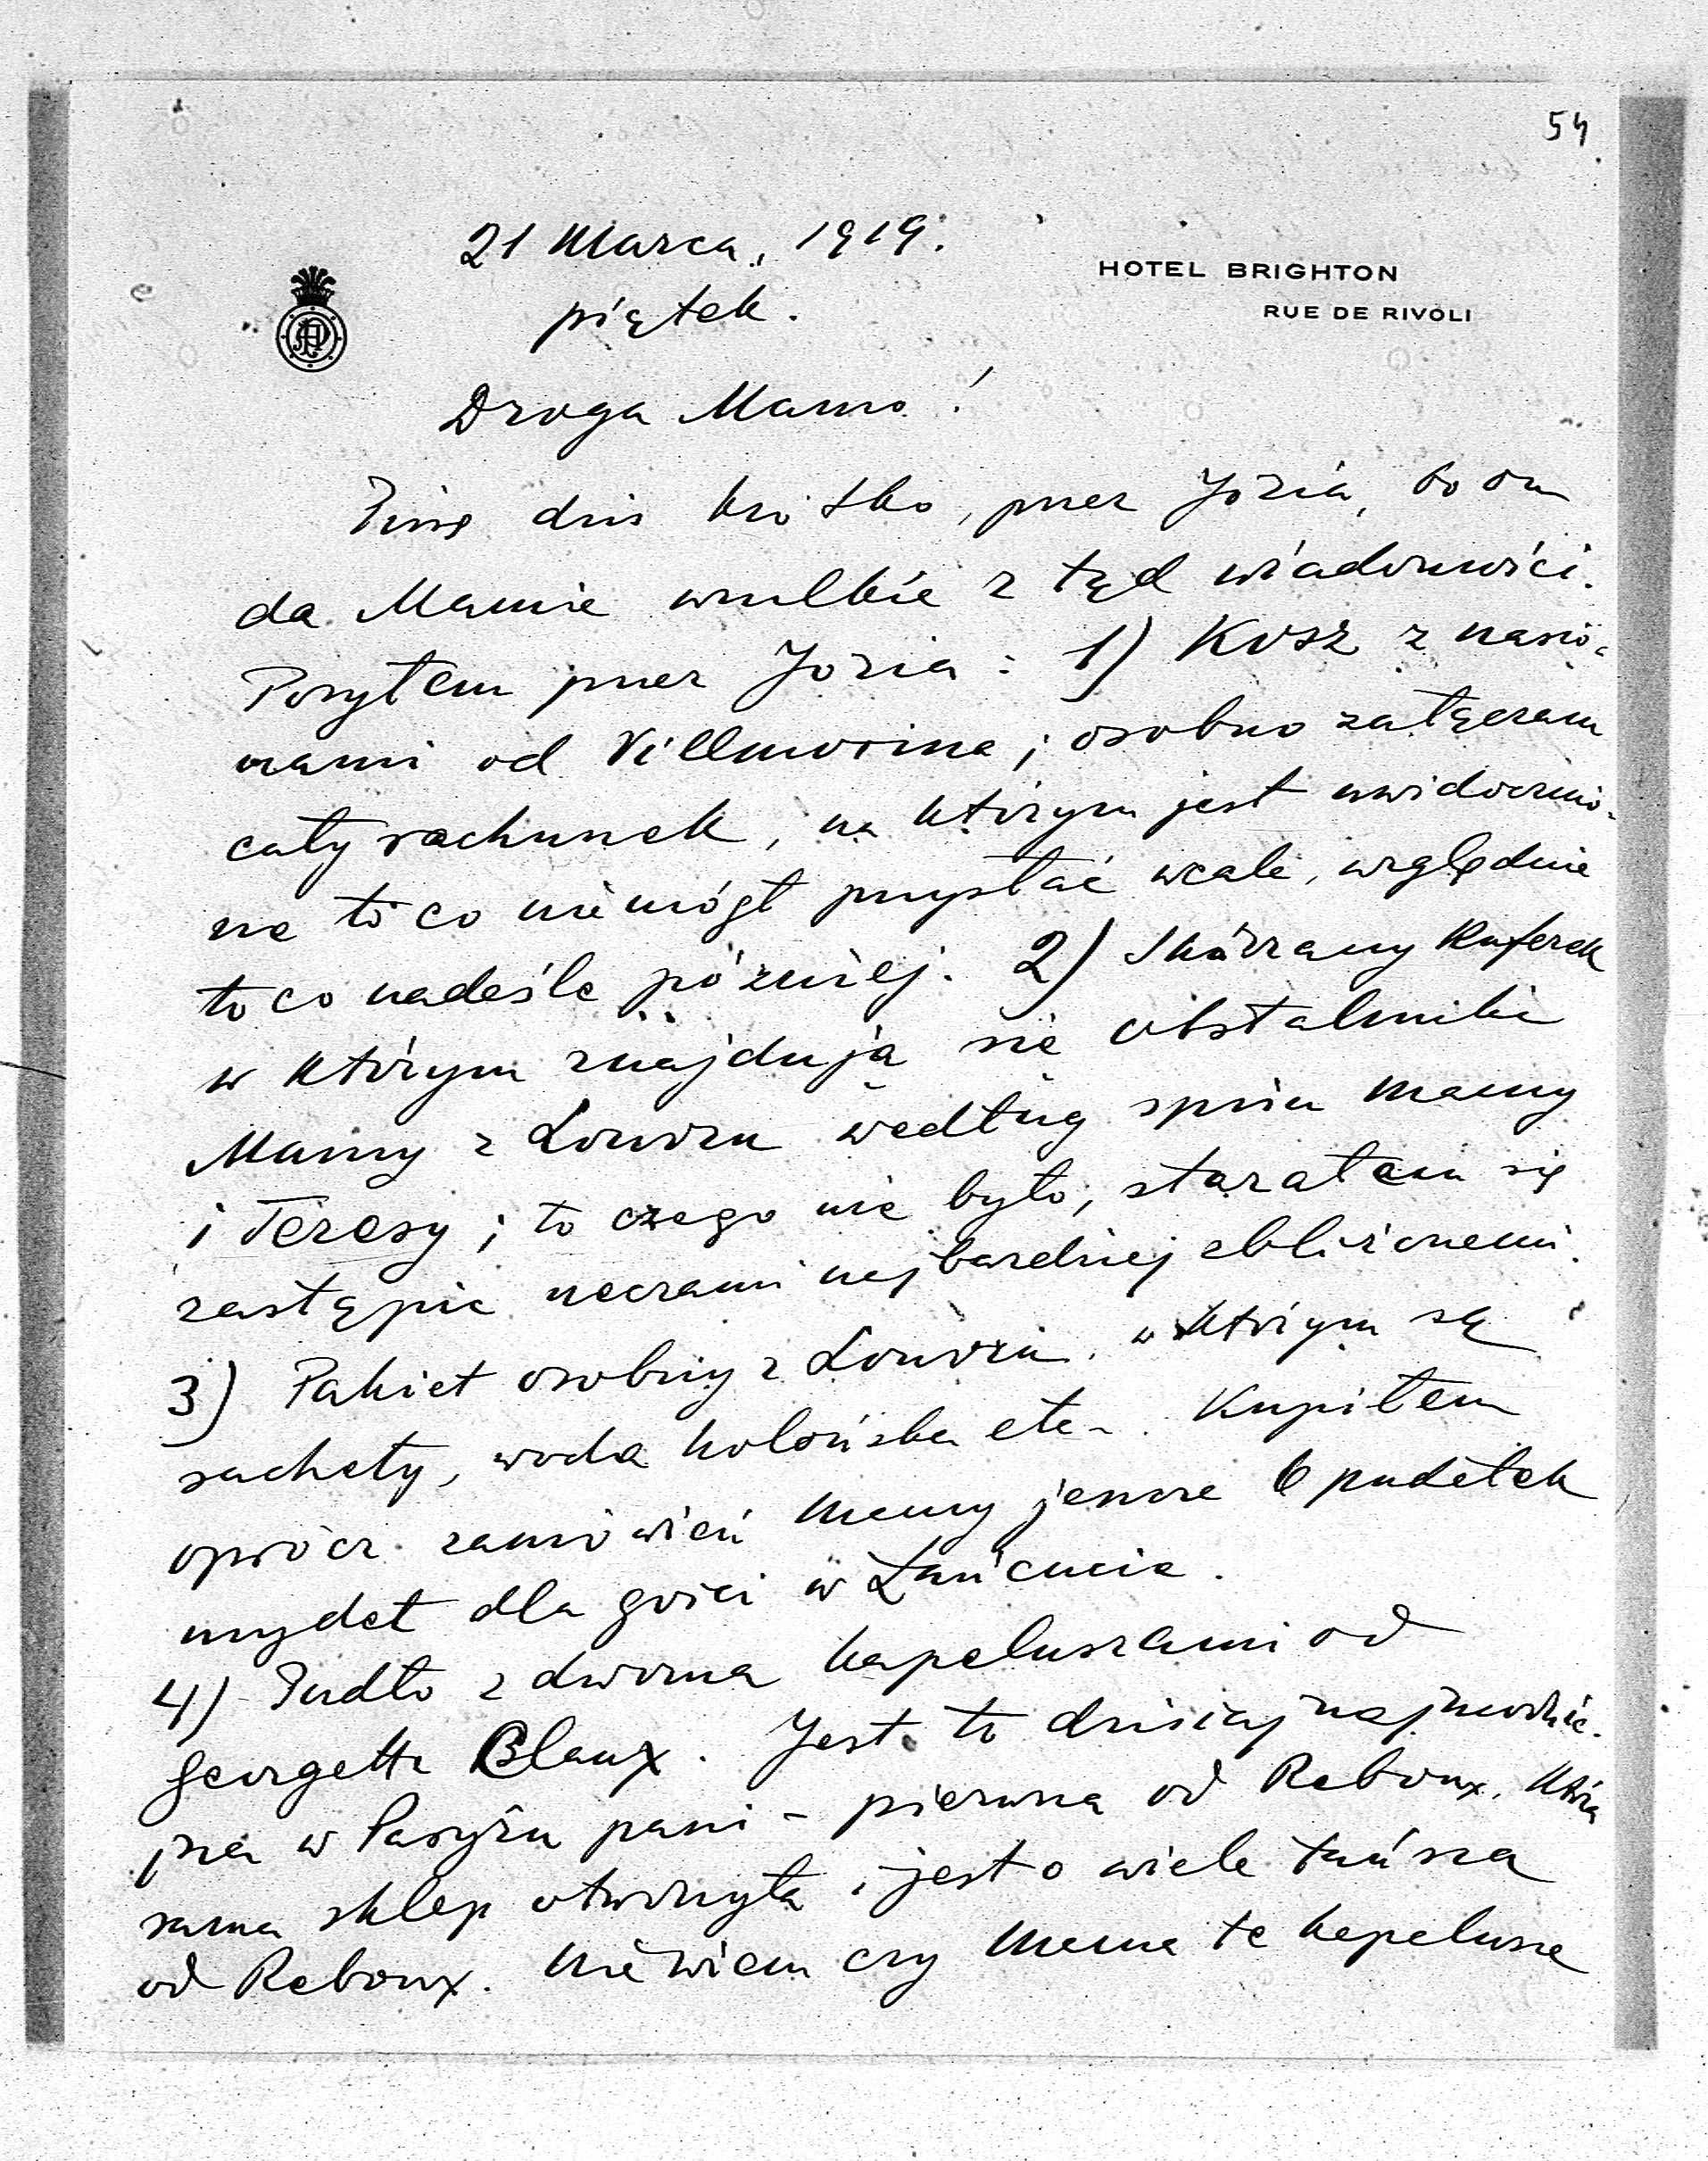 54
21 Marca, 1919.
HOTEL BRIGHTON
RUE DE RIVOLI
piątek.
Droga Mamo!
Piszę dziś krótko, przez Józia, bo on
da Mamie wszelkie z tąd wiadomości.
Posyłam przez Józia: 1) Kosz z nasio-
nami od Villmorina; osobno załączam
cały rachunek, na którym jest uwidocznio-
ne to co nie mógł przysłać wcale, względnie
to co nadeśle później. 2) Skórzany kuferek
w którym znajdują się obstalunki
Mamy z Louvru według spisu Mamy
i Teresy; to czego nie było, starałem się
zastąpić rzeczami najbardziej zbliżonemi.
3) Pakiet osobny z Louvru, w którym są
sachety, woda kolońska etc. Kupiłem
oprócz zamówień Mamy jeszcze 6 pudełek
mydeł dla gości w Łańcucie.
4) Pudło z dwoma kapeluszami od
Georgette Blaux. Jest to dzisiaj najmodnie-
jsza w Paryżu pani - pierwsza od Reboux, która
sama sklep otworzyła i jest o wiele tańsza
od Reboux. Nie wiem czy Mama te kapelusze